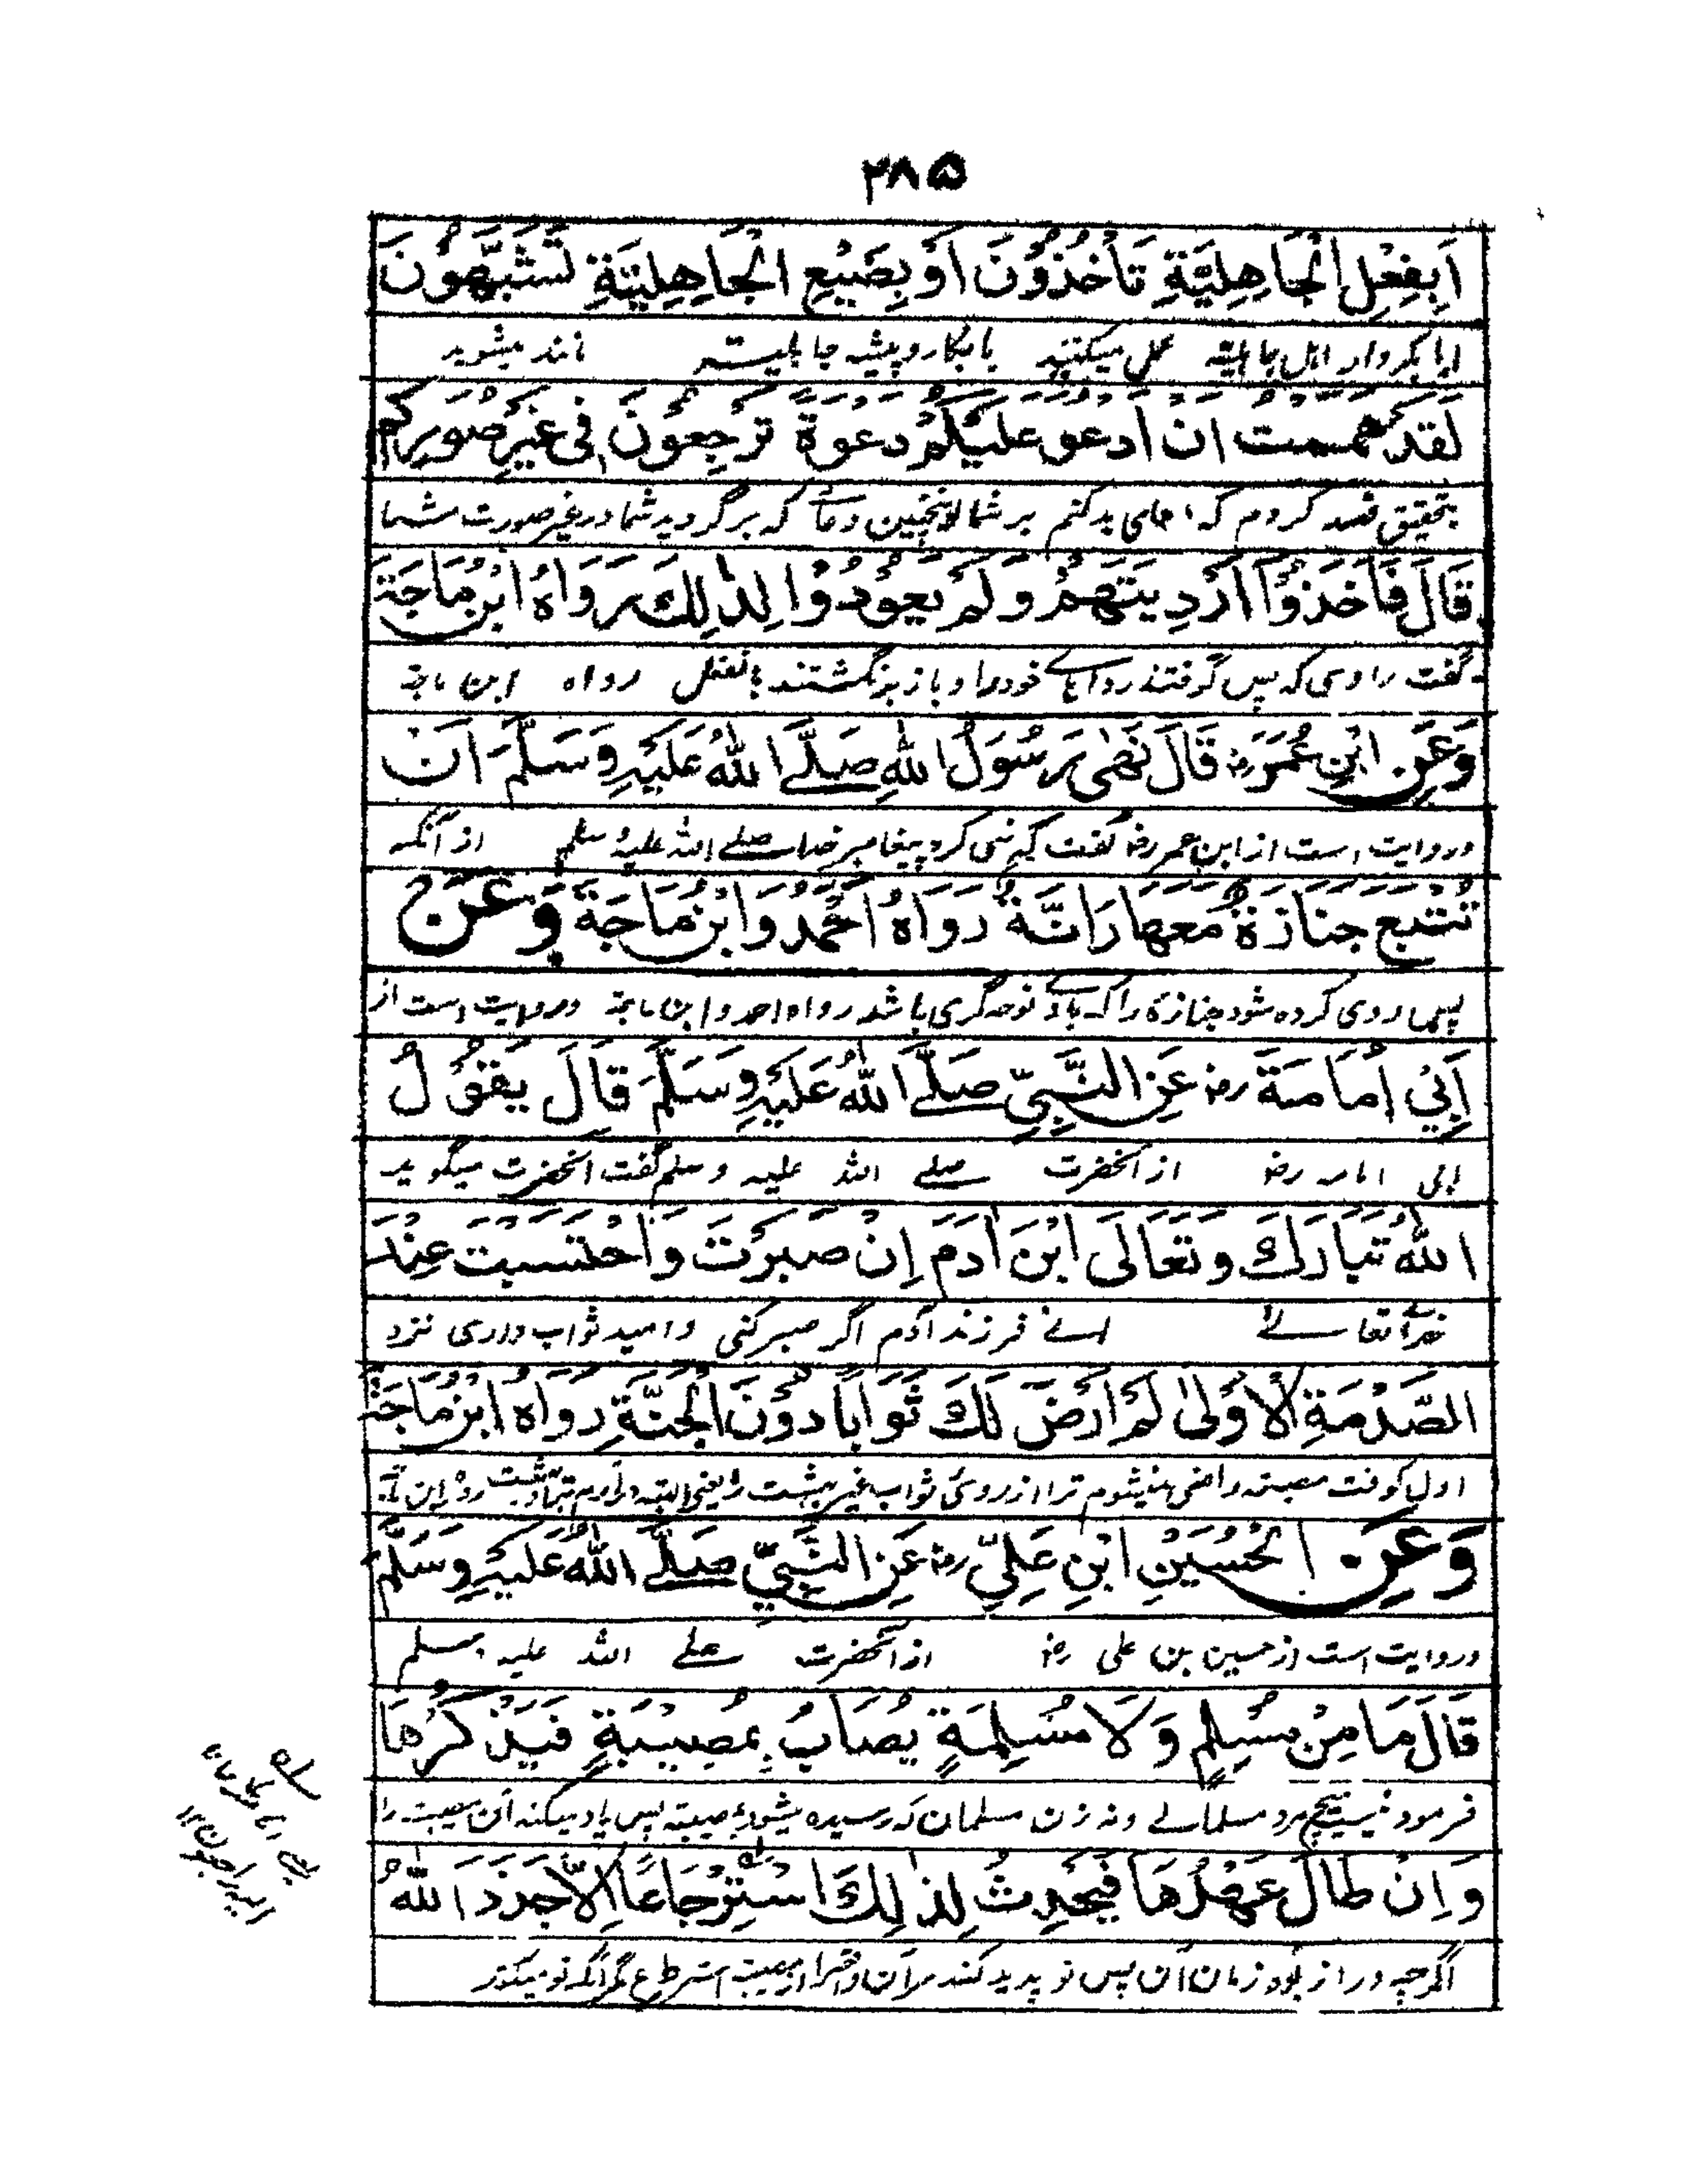 ۲۸۵
اَبِفِعْلِ الْجَاهِلِيَّةِ تَأْخُذُوْنَ اَوْ بِصَنِيْعِ الْجَاهِلِيَّةِ تَشَبَّهُوْنَ
ایا بکردار اہل جاہلیۃ عمل میکنید یا بکار و پیشہ جاہلیت مانند میشوید
لَقَدْ هَمَمْتُ اَنْ اَدْعُوَ عَلَيْكُمْ دَعْوَةً تَرْجِعُوْنَ فِى غَيْرِ صُوَرِكُمْ
بتحقیق قصد کردم کہ دعای بد کنم بر شما دعائے کہ برگردید شما در غیر صورت شما
قَالَ فَاَخَذُوْا اَرْدِيَتَهُمْ وَلَمْ يَعُوْدُوْا لِذٰلِكَ رَوَاهُ ابْنُ مَاجَةَ
گفت راوی کہ پس گرفتند رداہائے خود را و باز برنگشتند رواہ ابن ماجۃ
وَعَنِ ابْنِ عُمَرَ رض قَالَ نَهٰى رَسُوْلُ اللّٰهِ صَلَّے اللّٰهُ عَلَيْهِ وَسَلَّمَ اَنْ
و روایت است از ابن عمر رض گفت کہ نہی کرد پیغامبر خدا صلے اللہ علیہ وسلم از آنکہ
تُتْبَعَ جَنَازَةٌ مَعَهَا رَانَّةٌ رَوَاهُ اَحْمَدُ وَابْنُ مَاجَةَ وَعَنْ
پیروی کردہ شود جنازہ را کہ با او نوحہ گری باشد رواہ احمد و ابن ماجۃ و روایت است از
اَبِيْ اُمَامَةَ رض عَنِ النَّبِيِّ صَلَّے اللّٰهُ عَلَيْهِ وَسَلَّمَ قَالَ يَقُوْلُ
ابی امامہ رض از آنحضرت صلے اللہ علیہ وسلم گفت آنحضرت میگوید
اللّٰهُ تَبَارَكَ وَتَعَالَى ابْنَ اٰدَمَ اِنْ صَبَرْتَ وَاحْتَسَبْتَ عِنْدَ
خدائے تعالے اے فرزند آدم اگر صبر کنی و امید ثواب داری نزد
الصَّدْمَةِ الْاُوْلٰى لَمْ اَرْضَ لَكَ ثَوَابًا دُوْنَ الْجَنَّةِ رَوَاهُ ابْنُ مَاجَةَ
اول کوفت مصیبت راضی نمیشوم ترا از روی ثواب غیر بہشت را یعنی البتہ
وَعَنِ الْحُسَيْنِ ابْنِ عَلِيٍّ رض عَنِ النَّبِيِّ صَلَّے اللّٰهُ عَلَيْهِ وَسَلَّمَ
و روایت است از حسین بن علی رض از آنحضرت صلے اللہ علیہ وسلم
قَالَ مَا مِنْ مُسْلِمٍ وَلَا مُسْلِمَةٍ يُصَابُ بِمُصِيْبَةٍ فَيَذْكُرُهَا
فرمود نیست ہیچ مرد مسلمانے و نہ زن مسلمان کہ رسیدہ میشود بمصیبت پس یاد میکند آن مصیبت را
وَاِنْ طَالَ عَهْدُهَا فَيُحْدِثُ لِذٰلِكَ اسْتِرْجَاعًا اِلَّا جَدَّدَ اللّٰهُ
اگرچہ دراز بود زمان آن پس نو پدید کند